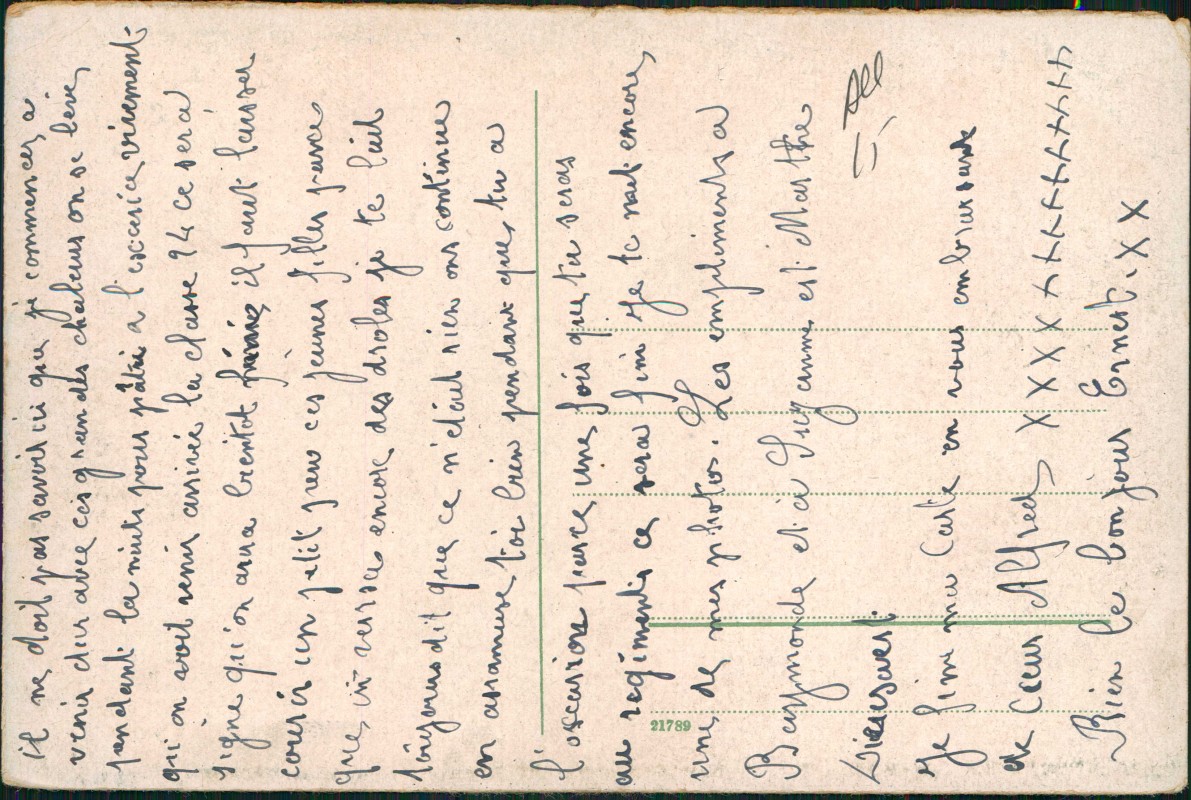 il ne doit pas savoir ici que je commences a
venir dur avec ces grandes chaleurs on se leve,
pendant la nuits pour pâtir a l'exercice vivement
qu'on voit venir arrivée la classe 24 ce sera
signe qu'on aura bientot il faut laisser
courir un petit peu ces jeunes filles parce
que, verras encore des droles je te l'ait
toujours dit que ce n'étaut rien ons continue
en assamuse toi bien pendant que, tu a
l'occasions parce, une fois que, tu seras
au regiments ce sera fini Je te raut encore,
une de mes photos. Les empliments a
Raymonde et à Suzanne, et Marthe
Je fini ma Carte en vous embrassant
de Coeur Alfred x x x x x x x x x x x x
Bien le bonjour Ernest. x x
21789